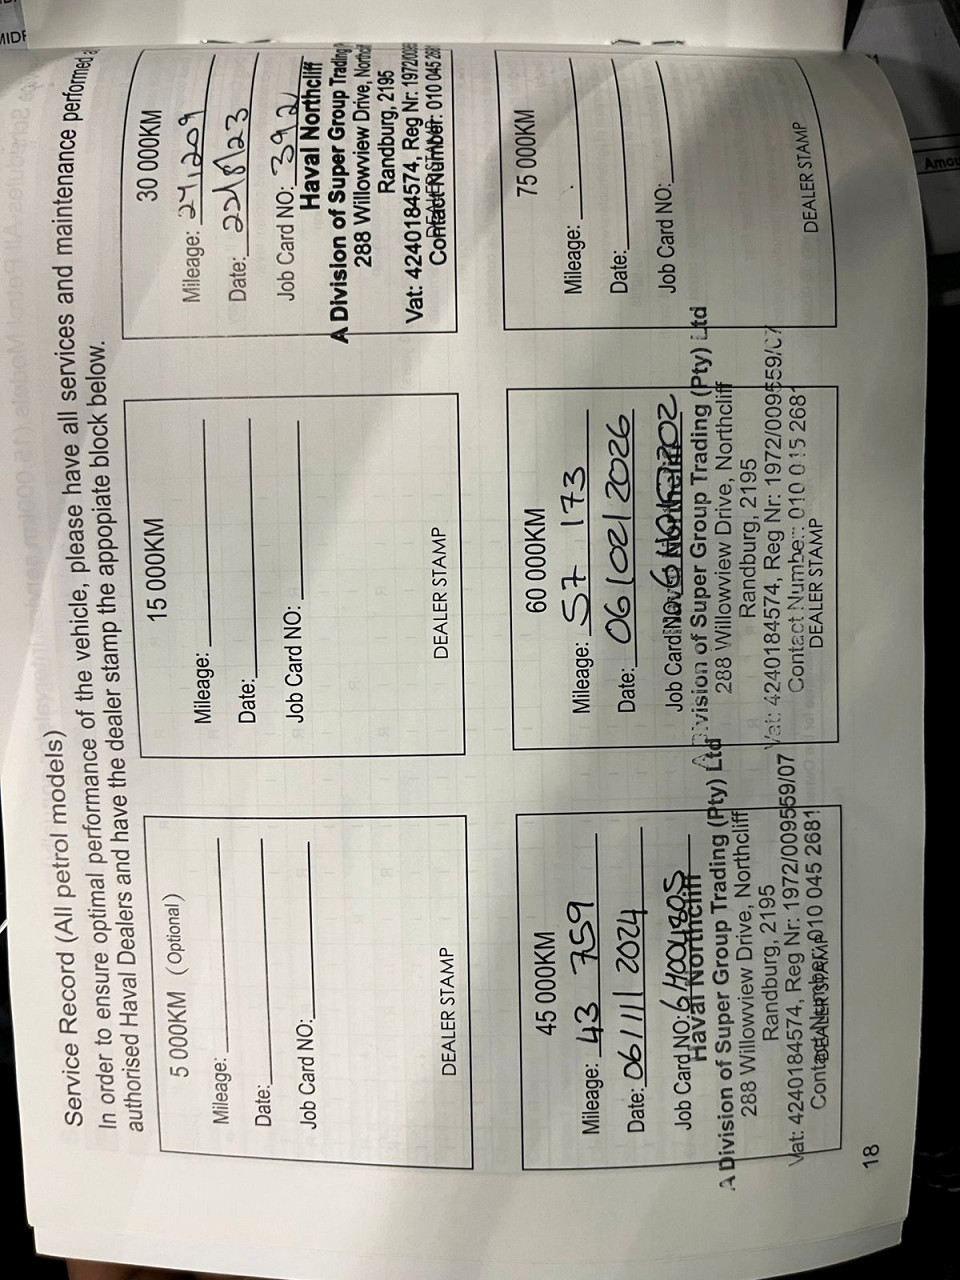 Service Record (All petrol models)
In order to ensure optimal performance of the vehicle, please have all services and maintenance performed
authorised Haval Dealers and have the dealer stamp the appopiate block below.
5 000KM (Optional)
Mileage:
Date:
Job Card NO:
DEALER STAMP
15 000KM
Mileage:
Date:
Job Card NO:
DEALER STAMP
30 000KM
Mileage: 27,209
Date: 22/8/23
Job Card NO: 392
Haval Northcliff
A Division of Super Group Trading
288 Willowview Drive, Northcliff
Randburg, 2195
Vat: 4240184574, Reg Nr: 1972/009
Contact Number: 010 045 2681
DEALER STAMP
45 000KM
Mileage: 43 759
Date: 06/11/2024
Job Card NO: 6H004805
Haval Northcliff
A Division of Super Group Trading (Pty) Ltd
288 Willowview Drive, Northcliff
Randburg, 2195
Vat: 4240184574, Reg Nr: 1972/009559/07
Contact Number: 010 045 2681
DEALER STAMP
60 000KM
Mileage: 57 173
Date: 06/02/2026
Job Card NO:
Haval Northcliff
A Division of Super Group Trading (Pty) Ltd
288 Willowview Drive, Northcliff
Randburg, 2195
Vat: 4240184574, Reg Nr: 1972/009559/07
Contact Number: 010 015 2681
DEALER STAMP
75 000KM
Mileage:
Date:
Job Card NO:
DEALER STAMP
18
Amou